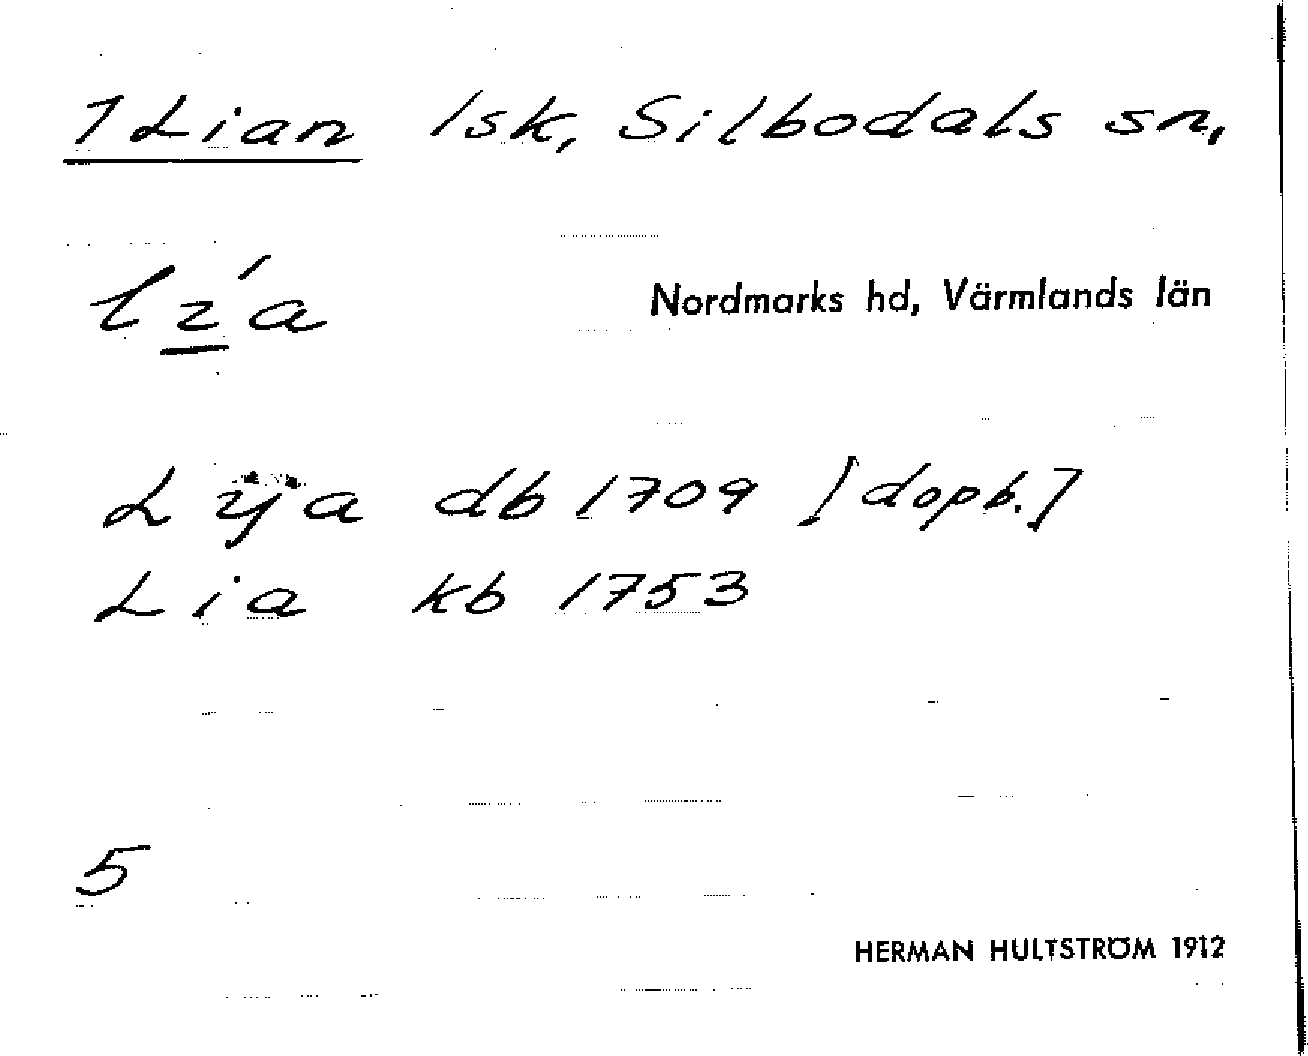 1 Lian lsk, Silbodals sn,
lı́a
Nordmarks hd, Värmlands län
Lÿa db 1709 [dopb.]
Lia kb 1753
5
HERMAN HULTSTRÖM 1912